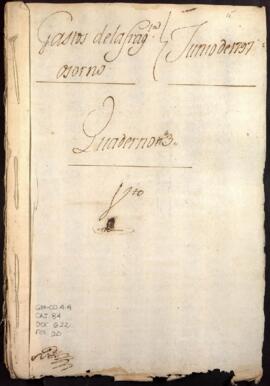 Gastos de la frag.ta
osorno
Junio de 1797
Quaderno n.º 3.
GM-CO 4.4
CAJ. 84
DOC 622
FOL 20